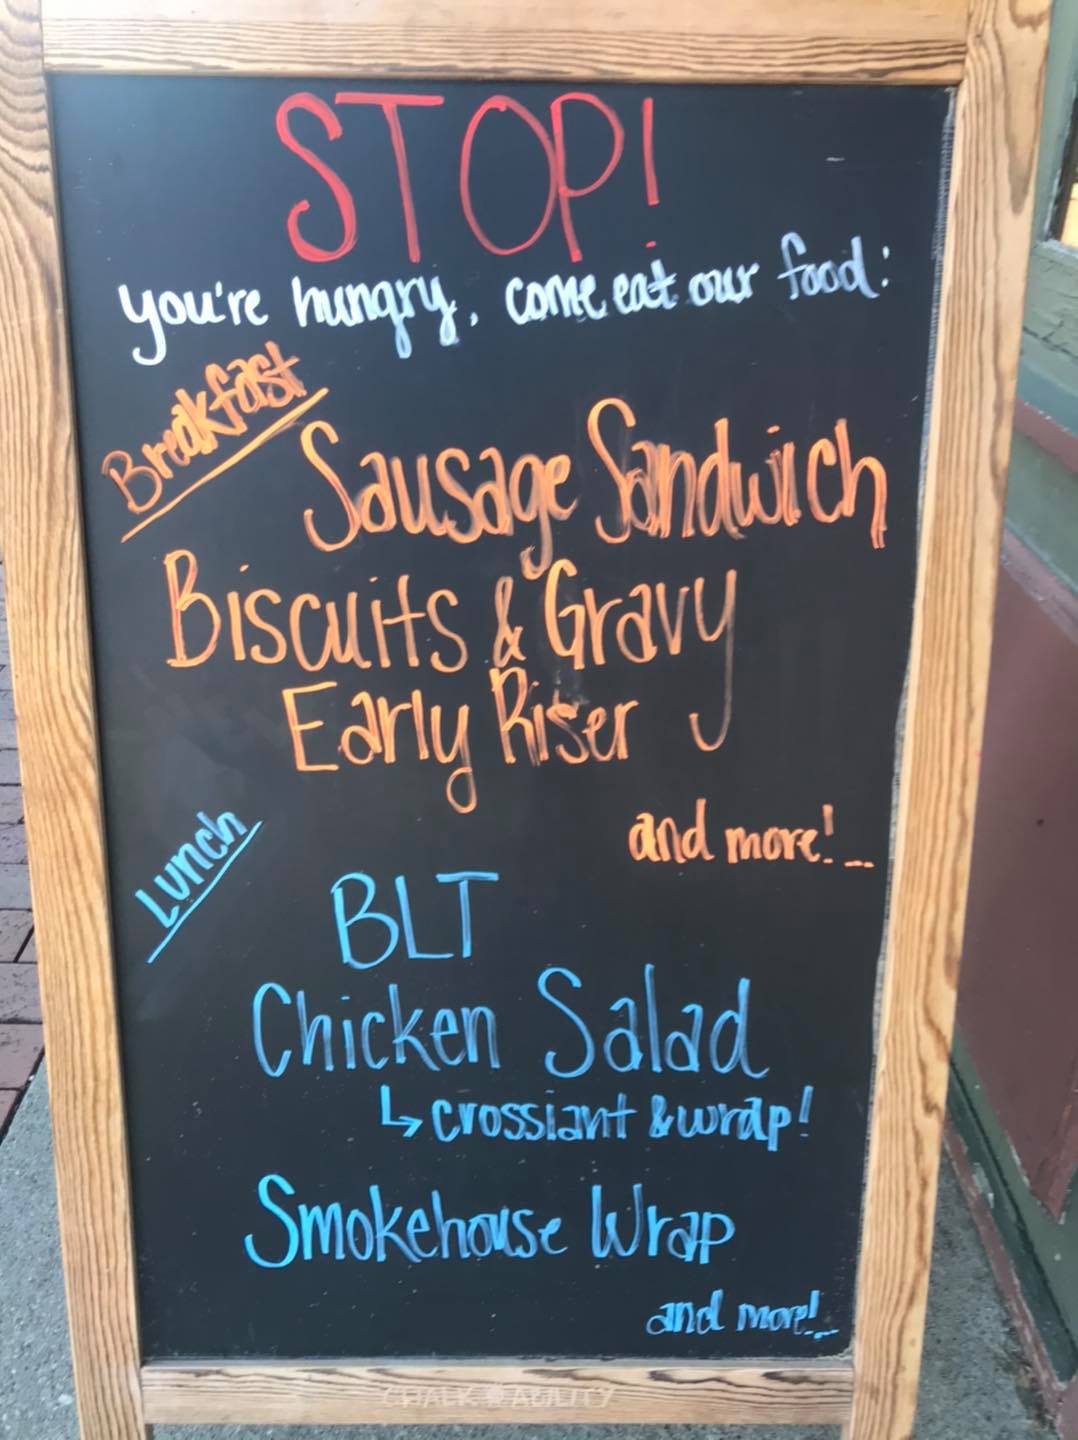 STOP!
you're hungry, come eat our food:
Breakfast
Sausage Sandwich
Biscuits & Gravy
Early Riser
and more!...
Lunch
BLT
Chicken Salad
↳ crossiant & wrap!
Smokehouse Wrap
and more!...
CHALK AGILITY